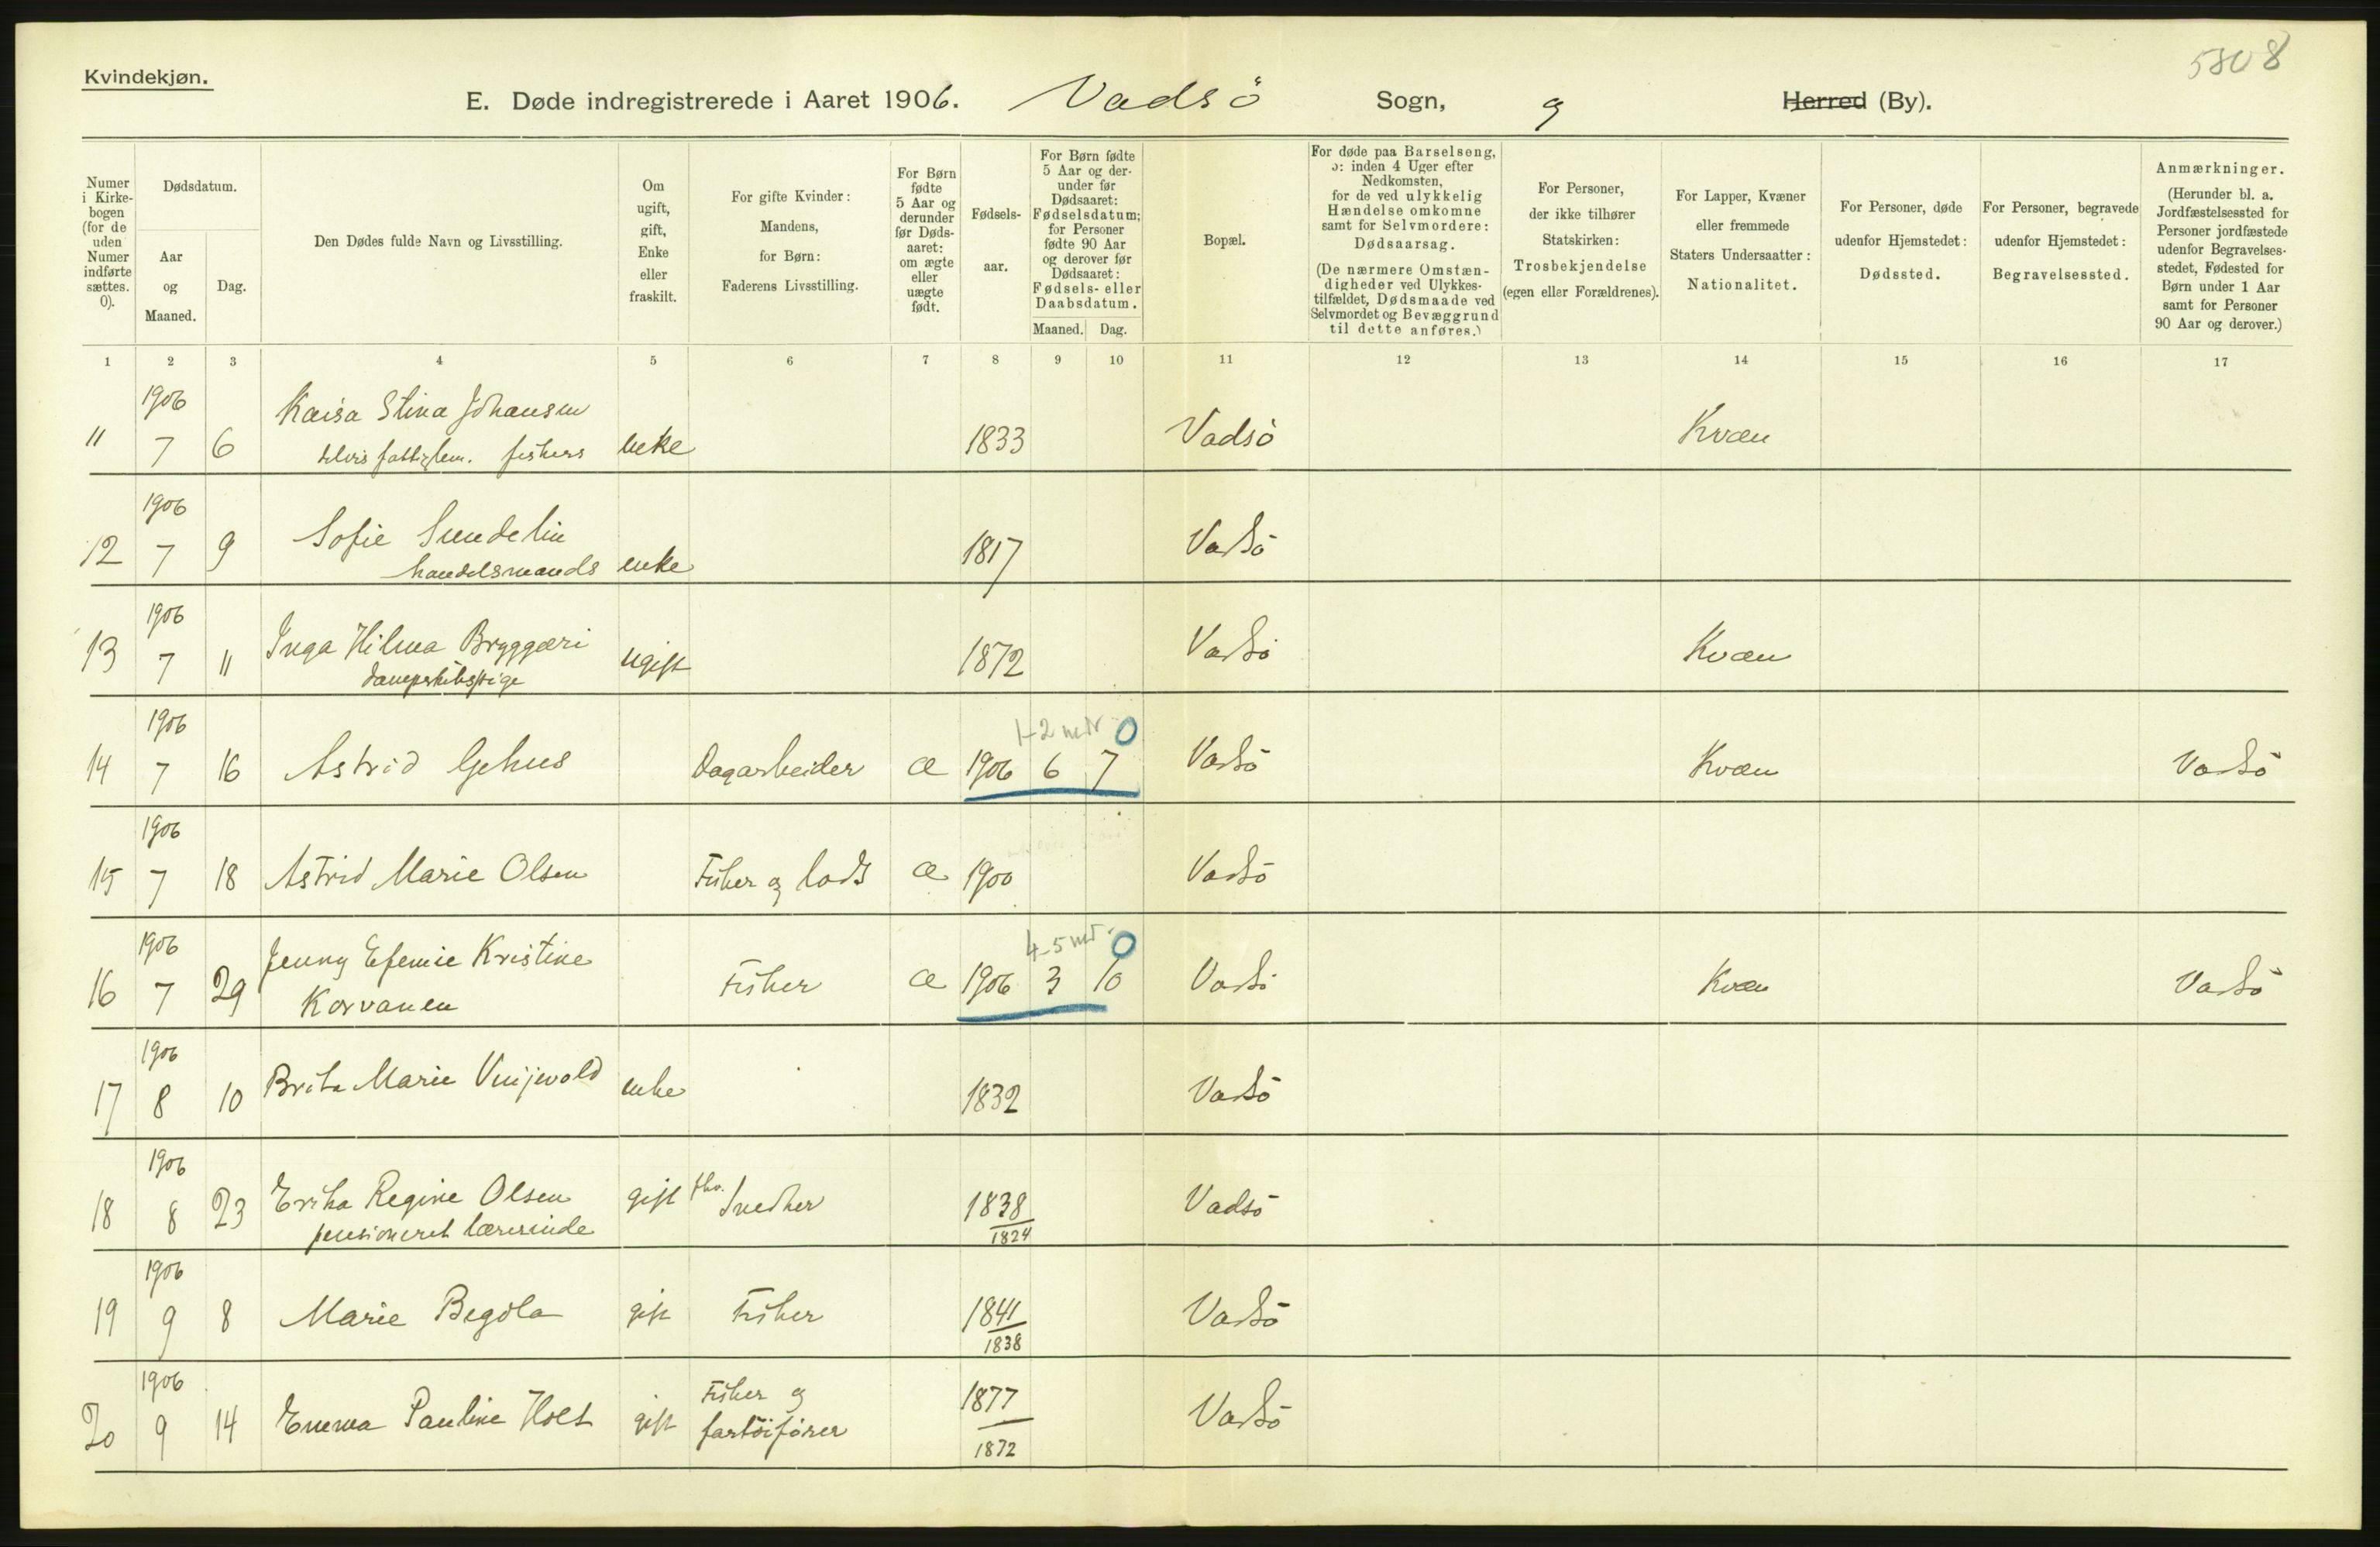 Kvindekjøn.
5808
E. Døde indregistrerede i Aaret 1906. Vadsö Sogn, og Herred (By).
Numer i Kirkebogen (for de uden Numer indførte sættes. 0).
Dødsdatum.
Aar og Maaned.
Dag.
Den Dødes fulde Navn og Livsstilling.
Om ugift, gift, Enke eller fraskilt.
For gifte Kvinder: Mandens, for Børn: Faderens Livsstilling.
For Børn fødte 5 Aar og derunder før Dødsaaret: om ægte eller uægte født.
Fødselsaar.
For Børn fødte 5 Aar og derunder før Dødsaaret: Fødselsdatum; for Personer fødte 90 Aar og derover før Dødsaaret: Fødsels- eller Daabsdatum.
Maaned. Dag.
Bopæl.
For døde paa Barselseng, ɔ: inden 4 Uger efter Nedkomsten, for de ved ulykkelig Hændelse omkomne samt for Selvmordere: Dødsaarsag.
(De nærmere Omstændigheder ved Ulykkestilfældet, Dødsmaade ved Selvmordet og Bevæggrund til dette anføres.)
For Personer, der ikke tilhører Statskirken: Trosbekjendelse (egen eller Forældrenes).
For Lapper, Kvæner eller fremmede Staters Undersaatter: Nationalitet.
For Personer, døde udenfor Hjemstedet: Dødssted.
For Personer, begravede udenfor Hjemstedet: Begravelsessted.
Anmærkninger.
(Herunder bl. a. Jordfæstelsessted for Personer jordfæstede udenfor Begravelsesstedet, Fødested for Børn under 1 Aar samt for Personer 90 Aar og derover.)
1 2 3 4 5 6 7 8 9 10 11 12 13 14 15 16 17
1906 Kaisa Stina Johansen
11 7 6 delvis fattiglem. fiskers enke 1833 Vadsö Kvæn
1906
12 7 9 Sofie Sundelin 1817 Vadsö
handelsmands enke
1906
13 7 11 Inga Hilma Bryggæri ugift 1872 Vadsö Kvæn
dampskibspige
1906 1-2 mdr 0
14 7 16 Astrid Gehus Dagarbeider æ 1906 6 7 Vadsö Kvæn Vadsö
1906
15 7 18 Astrid Marie Olsen Fisker og lods æ 1900 Vadsö
1906 4-5 md. 0
16 7 29 Jenny Efemie Kristine Fisker æ 1906 3 10 Vadsö Kvæn Vadsö
Korvanen
1906
17 8 10 Brita Marie enke 1832 Vadsö
1906
18 8 23 Erika Regine Olsen gift fhv. Snedker 1838 Vadsö
pensioneret lærerinde 1824
1906
19 9 8 Marie Begola gift Fisker 1841 Vadsö
1838
1906 Fisker og 1877
20 9 14 Emma Pauline Holst gift fartöifører Vadsö
1872